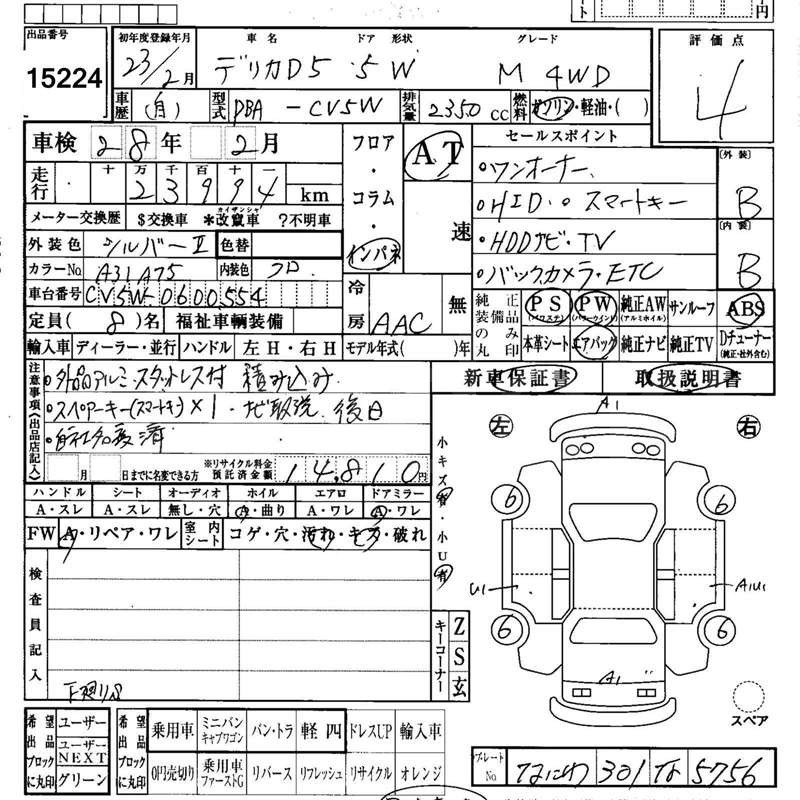 出品番号 初年度登録年月 車名 ドア 形状 グレード 評価点
15224 23/2月 デリカD5 5W M 4WD 4
車歴 (自) 型式 DBA-CV5W 排気量 2350cc 燃料 ガソリン・軽油・( )
車検 28年 2月 フロア・コラム・インパネ AT 速 セールスポイント
走行 十万千百十一 23994 km
・ワンオーナー
・HID・スマートキー
・HDDナビ・TV
・バックカメラ・ETC
[外装] B
[内装] B
メーター交換歴 $交換車 *改竄車 カイザンシャ ?不明車
外装色 シルバーⅡ 色替
カラーNo. A31A75 内装色 クロ
車台番号 CV5W-0600554 冷房 AAC 無
定員 (8)名 福祉車輌装備
純正装備品の み 丸印 PS (パワステ) PW (パワーウインド) 純正AW (アルミホイル) サンルーフ ABS
本革シート エアバック 純正ナビ 純正TV Dチューナー (純正・社外含む)
輸入車 ディーラー・並行 ハンドル 左H・右H モデル年式( )年
新車保証書 取扱説明書
注意事項《出品店記入》
・外品アルミ・スタットレス付 積み込み
・スペアーキー(スマートキー)×1・ナビ取説 後日
・自社名変済
月 日までに名変できる方 ※リサイクル料金預託済金額 14,810円
ハンドル シート オーディオ ホイル エアロ ドアミラー
A・スレ A・スレ 無し・穴 A・曲り A・ワレ A・ワレ
FW A・リペア・ワレ 室内シート コゲ・穴・汚れ・キズ・破れ
検査員記入
下廻りS
小キズ有・小U有
キーコーナー Z S 玄
左 右
A1
6 6
U1 A1U1
6 6
A1
スペア
希望出品ブロックに丸印 ユーザー ユーザーNEXT グリーン
希望出品ブロックに丸印 乗用車 ミニバンキャブワゴン バン・トラ 軽四 ドレスUP 輸入車
0円売切り 乗用車ファーストG リバース リフレッシュ リサイクル オレンジ
プレートNo なにわ 301 な 5756